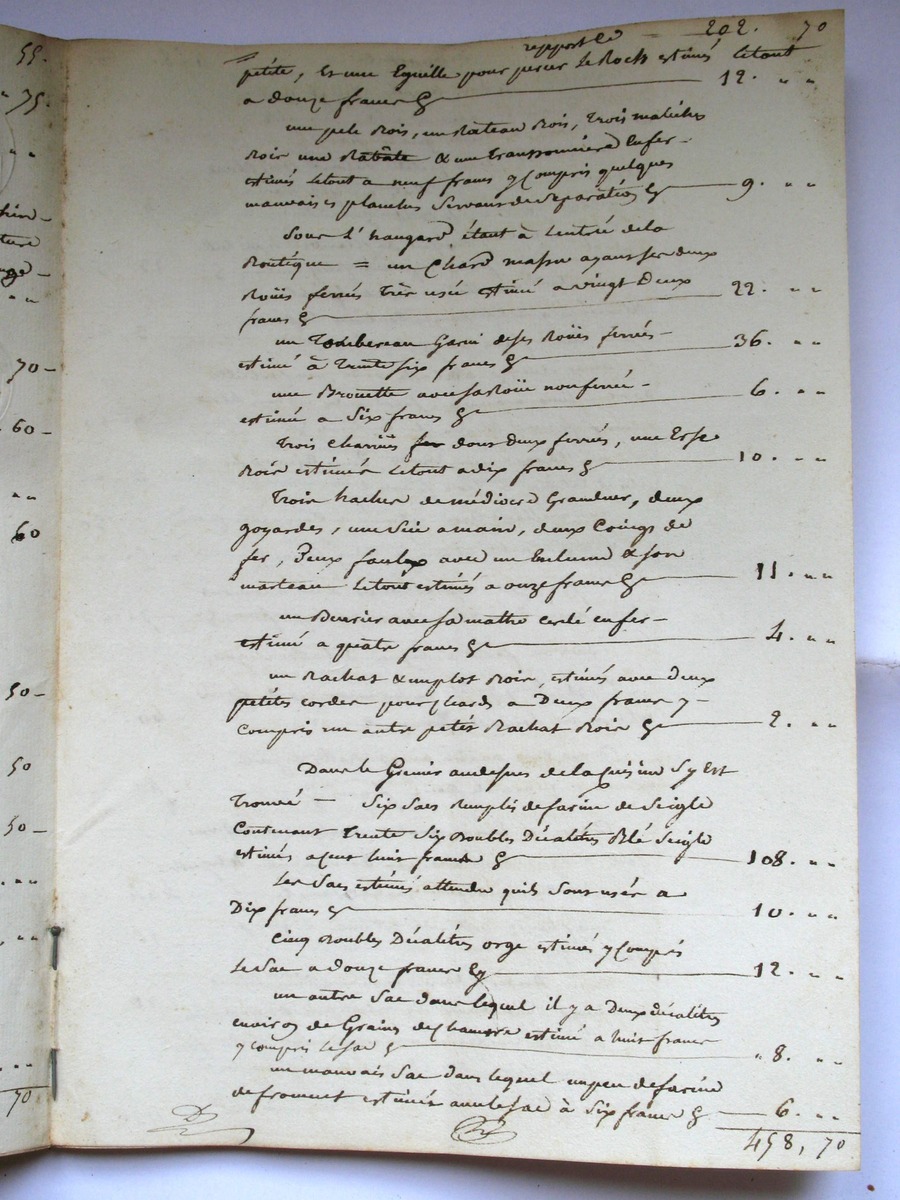 55.
75.
70 -
60 -
60
50 -
50
50 -
70
report Cy 202. 70
petite, Et une Eguille pour percer Le Rocq estimés Letout
a douze francs Cy 12. " "
une pele Bois, un Rateau Bois, Trois
Bois une Rabate & une Enfer -
estimés Letout a neuf francs y Compris quelques
mauvaises planches Servant de Séparation Cy 9. " "
Sous L'hangard étant à Lentrée dela
Boutique = un Chard massu ayant ses deux
Roüës ferrées Très usée Estimé a vingt Deux
francs Cy 22. " "
un Tombereau Garni deses Roües ferrées -
estimé à Trente Six francs Cy 36. " "
une Brouette avec sa Roüe non ferrée -
estimé a Six francs Cy 6. " "
Trois Charrües dont deux ferrées, une
Bois estimés Letout a dix francs Cy 10. " "
Trois haches de médiocre Grandeur, deux
goyardes, une Sie a main, deux Coings de
fer, Deux faulx avec un Enlume & Son
marteau Letout estimés a onze francs Cy 11. " "
un avec sa Cerclé en fer -
estimé a quatre francs Cy 4. " "
un Rachat & Bois, estimés avec deux
petites cordes pour chards a Deux francs y -
Compris un autre petit Rachat Bois Cy 2. " "
Dans le Grenier audessus de la Cuisine Sy Est
Trouvé - Six Sacs Remplis de farine de Seigle
Contenant Trente Six Doubles Décalitres Blé Seigle
estimés a Cent huit francs Cy 108. " "
Les Sacs estimés attendu quils Sont usés a
Dix francs Cy 10. " "
Cinq Doubles Décalitres orge estimés y Compris
Le Sac a douze francs Cy 12. " "
un autre Sac dans lequel il y a Deux décalitres
environ de Graine de Chanvre estimé a huit francs
y compris Le Sac Cy " 8. " "
un mauvais Sac dans lequel un peu de farine
de froment estimés avec le sac à Six francs Cy 6. " "
458, 70